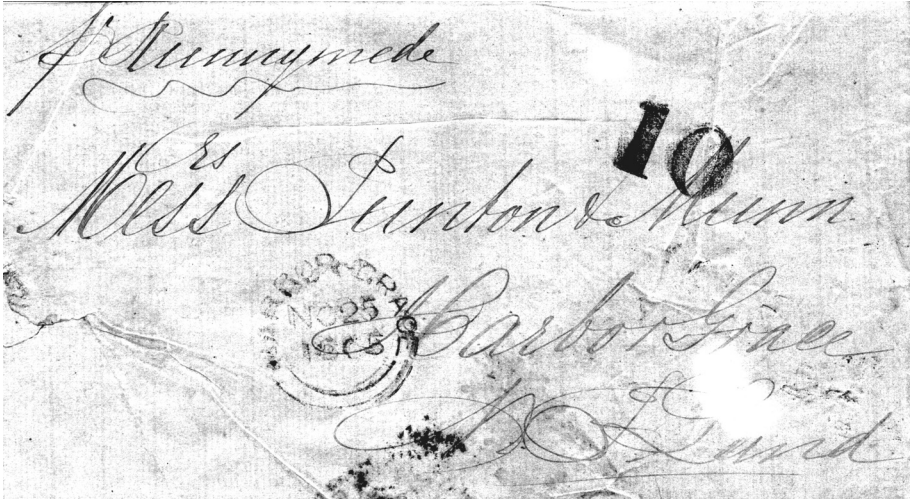 pr Runnymede
10
Messrs Punton & Munn
HARBOR-GRACE
NO 25
1865
Harbor Grace
N. F. Land